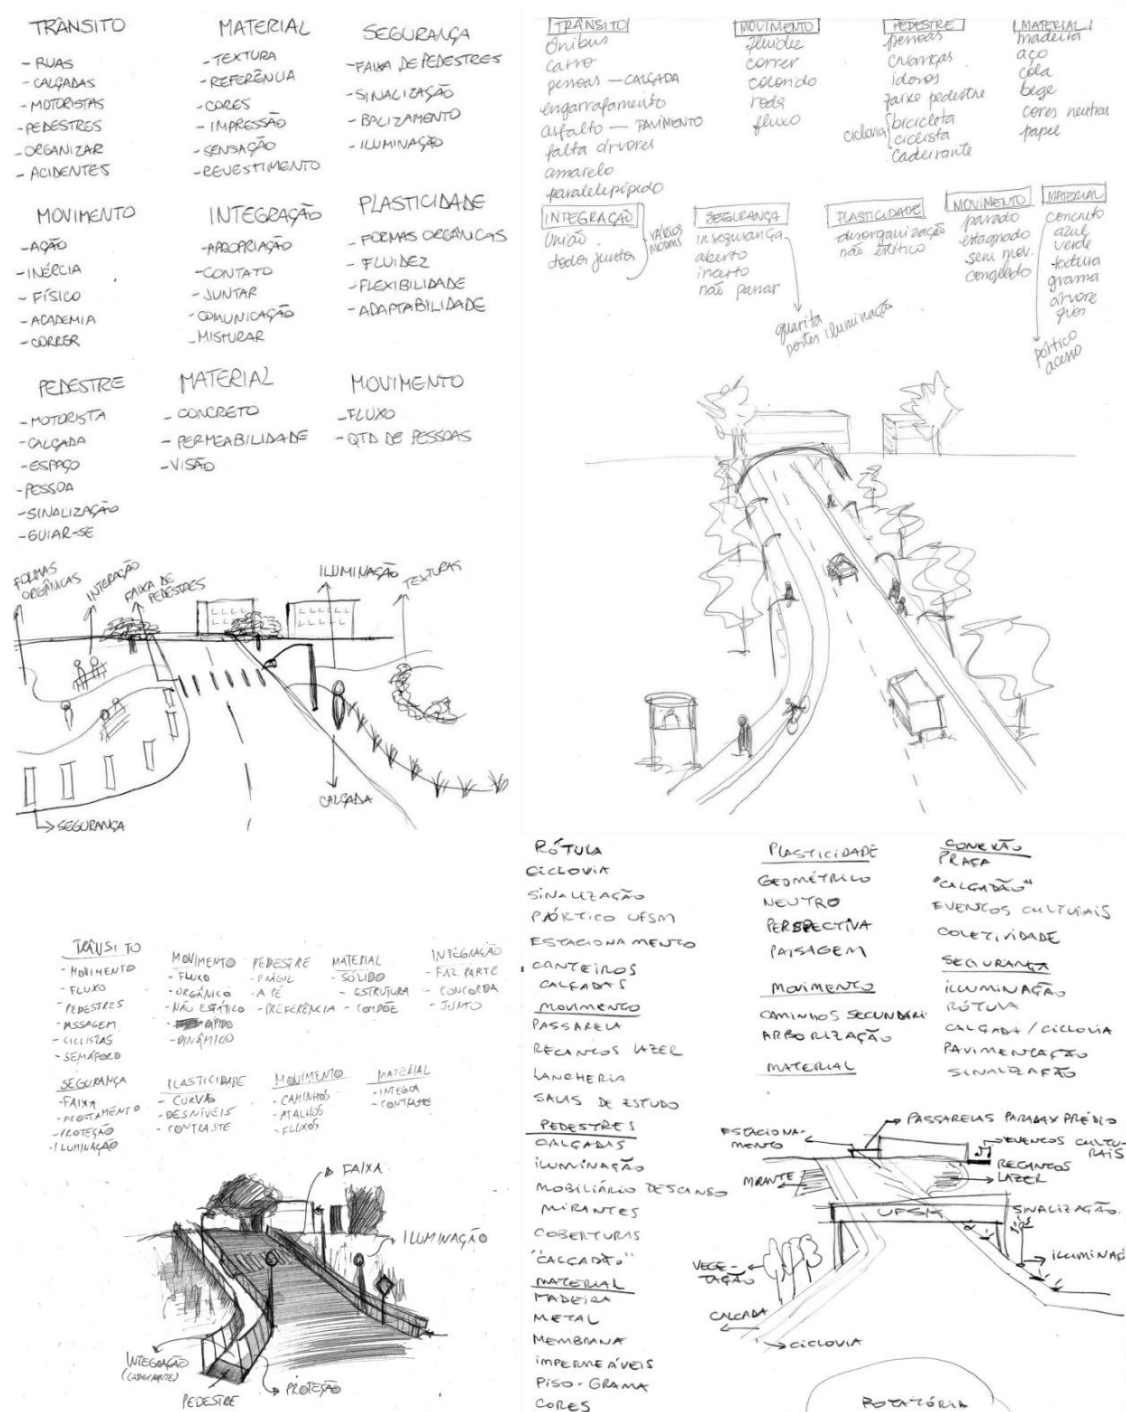 TRÂNSITO
- RUAS
- CALÇADAS
- MOTORISTAS
- PEDESTRES
- ORGANIZAR
- ACIDENTES
MATERIAL
- TEXTURA
- REFERÊNCIA
- CORES
- IMPRESSÃO
- SENSAÇÃO
- REVESTIMENTO
SEGURANÇA
- FAIXA DE PEDESTRES
- SINALIZAÇÃO
- BALIZAMENTO
- ILUMINAÇÃO
MOVIMENTO
- AÇÃO
- INÉRCIA
- FÍSICO
- ACADEMIA
- CORRER
INTEGRAÇÃO
- APROPRIAÇÃO
- CONTATO
- JUNTAR
- COMUNICAÇÃO
- MISTURAR
PLASTICIDADE
- FORMAS ORGÂNICAS
- FLUIDEZ
- FLEXIBILIDADE
- ADAPTABILIDADE
PEDESTRE
- MOTORISTA
- CALÇADA
- ESPAÇO
- PESSOA
- SINALIZAÇÃO
- GUIAR-SE
MATERIAL
- CONCRETO
- PERMEABILIDADE
- VISÃO
MOVIMENTO
- FLUXO
- QTD DE PESSOAS
FORMAS
ORGÂNICAS
INTERAÇÃO
FAIXA DE
PEDESTRES
ILUMINAÇÃO
TEXTURAS
CALÇADA
SEGURANÇA
TRÂNSITO
ônibus
carro
pessoas — CALÇADA
engarrafamento
asfalto — PAVIMENTO
falta árvores
amarelo
paralelepípedo
MOVIMENTO
fluidez
correr
colorido
roda
fluxo
PEDESTRE
pessoas
crianças
idosos
faixa pedestre
ciclovia
bicicleta
ciclista
Cadeirante
MATERIAL
madeira
aço
cola
bege
cores neutras
papel
INTEGRAÇÃO
União
todos juntos
VÁRIOS
MODAIS
SEGURANÇA
insegurança
aberto
incerto
não passar
guarita
postes iluminação
PLASTICIDADE
desorganização
não estético
MOVIMENTO
parado
estagnado
sem mov.
congelado
MATERIAL
concreto
azul
verde
textura
grama
árvore
pórtico
acesso
TRÂNSITO
- MOVIMENTO
- FLUXO
- PEDESTRES
- PASSAGEM
- CICLISTAS
- SEMÁFORO
MOVIMENTO
- FLUXO
- ORGÂNICO
- NÃO ESTÁTICO
- RÁPIDO
- DINÂMICO
PEDESTRE
- FRÁGIL
- A PÉ
- PREFERÊNCIA
MATERIAL
- SÓLIDO
- ESTRUTURA
- COMPÕE
INTEGRAÇÃO
- FAZ PARTE
- CONCORDA
- JUNTO
SEGURANÇA
- FAIXA
- ACOSTAMENTO
- PROTEÇÃO
- ILUMINAÇÃO
PLASTICIDADE
- CURVAS
- DESNÍVEIS
- CONTRASTE
MOVIMENTO
- CAMINHOS
- ATALHOS
- FLUXOS
MATERIAL
- INTEGRA
- CONTRASTE
FAIXA
ILUMINAÇÃO
INTEGRAÇÃO
(CADEIRANTE)
PEDESTRE
PROTEÇÃO
RÓTULA
CICLOVIA
SINALIZAÇÃO
PÓRTICO UFSM
ESTACIONAMENTO
CANTEIROS
CALÇADAS
MOVIMENTO
PASSARELA
RECANTOS LAZER
LANCHERIA
SALAS DE ESTUDO
PEDESTRES
CALÇADAS
ILUMINAÇÃO
MOBILIÁRIO DESCANSO
MIRANTES
COBERTURAS
"CALÇADÃO"
MATERIAL
MADEIRA
METAL
MEMBRANA
IMPERMEÁVEIS
PISO-GRAMA
CORES
PLASTICIDADE
GEOMÉTRICO
NEUTRO
PERSPECTIVA
PAISAGEM
MOVIMENTO
CAMINHOS SECUNDÁRI
ARBORIZAÇÃO
MATERIAL
CONEXÃO
PRAÇA
"CALÇADÃO"
EVENTOS CULTURAIS
COLETIVIDADE
SEGURANÇA
ILUMINAÇÃO
RÓTULA
CALÇADA/CICLOVIA
PAVIMENTAÇÃO
SINALIZAÇÃO
ESTACIONA-
MENTO
PASSARELAS PARADA X PRÉDIO
EVENTOS CULTU-
RAIS
RECANTOS
LAZER
MIRANTE
UFSM
SINALIZAÇÃO
ILUMINAÇ
VEGE-
TAÇÃO
CALÇADA
CICLOVIA
ROTATÓRIA